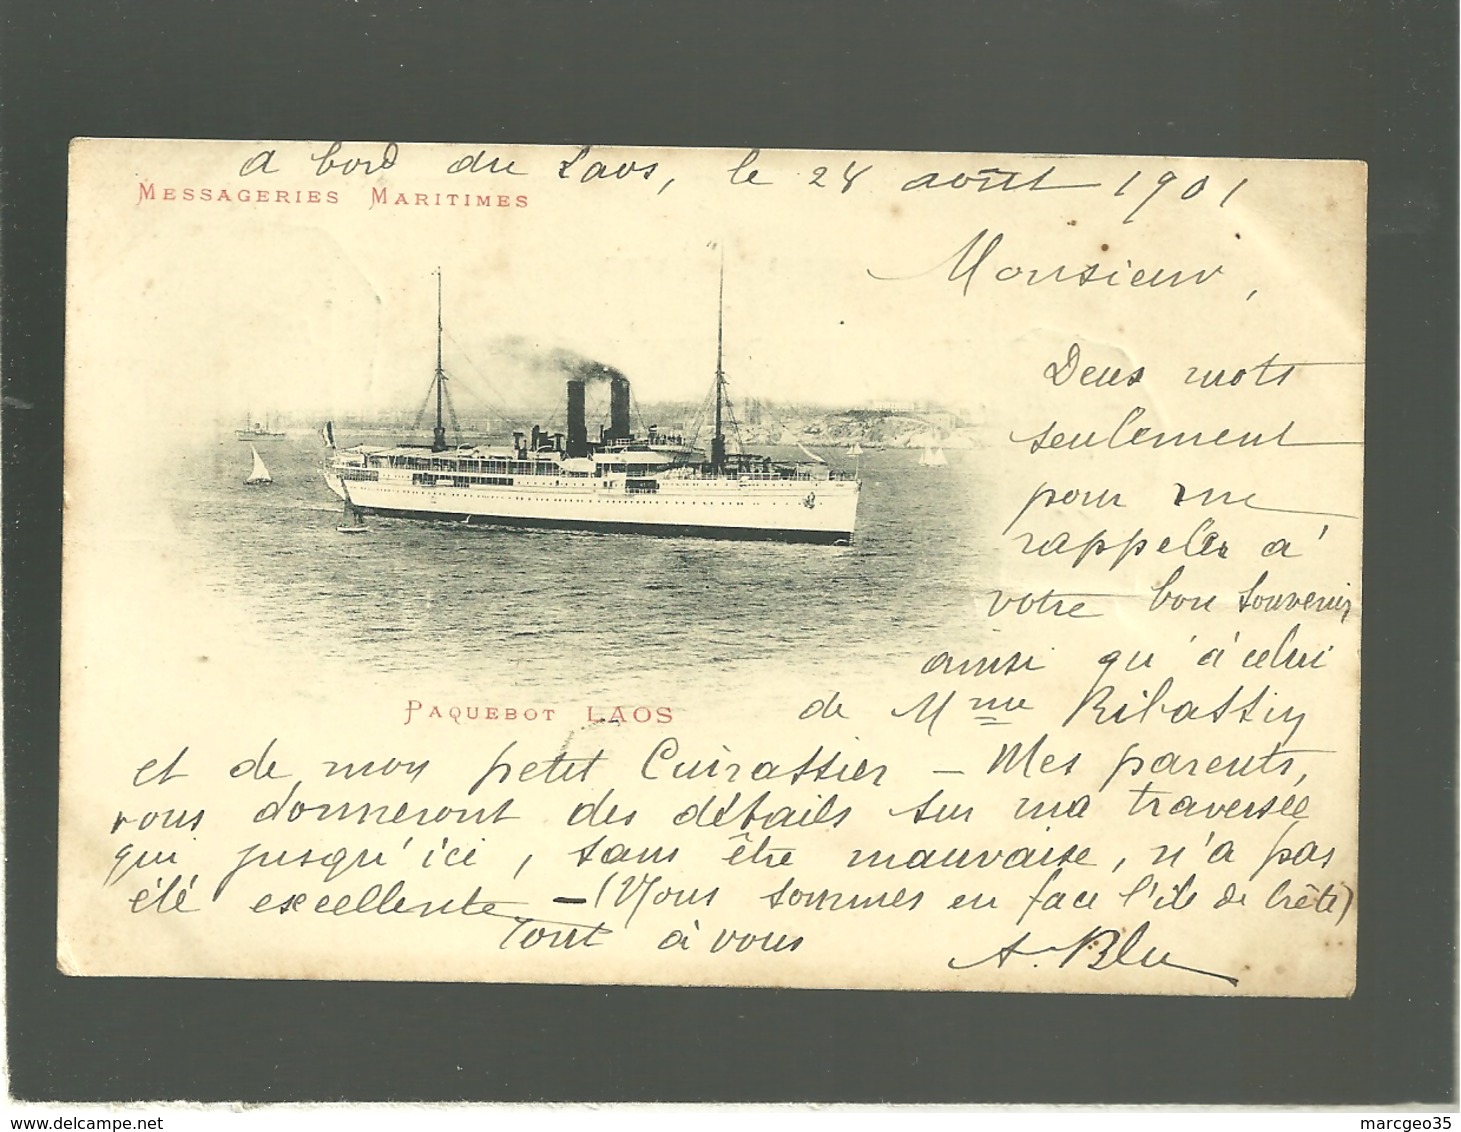 a bord du Laos, le 28 août 1901
MESSAGERIES MARITIMES
Monsieur,
Deux mots
seulement
pour me
rappeler à
votre bon souvenir,
ainsi qu'à celui
PAQUEBOT LAOS
de Mme Ribassin
et de mon petit Cuirassier - Mes parents,
vous donneront des détails sur ma traversée
qui jusqu'ici, sans être mauvaise, n'a pas
été excellente - (Nous sommes en face l'île de Crète)
Tout à vous
A. Blu
marcgeo35